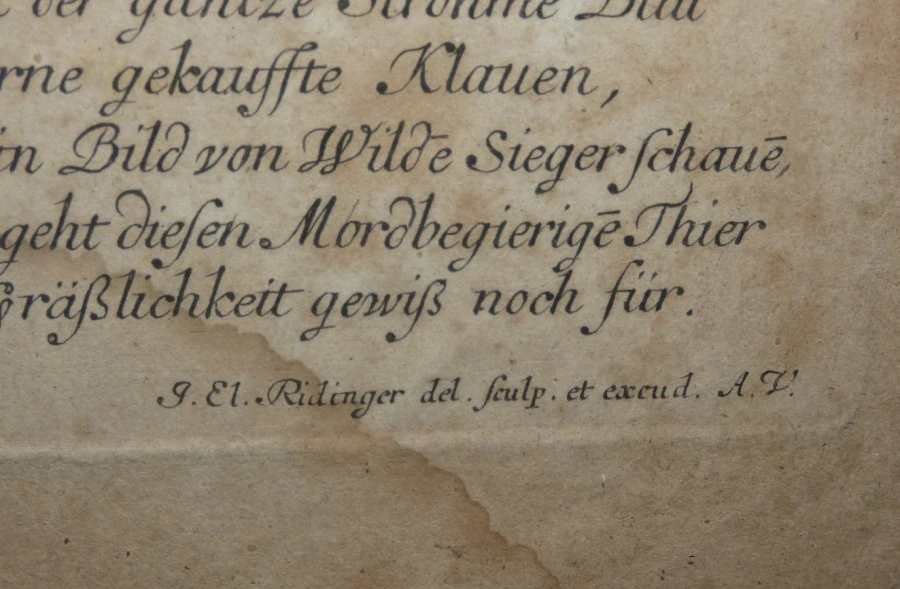 der gantze Ströhme Blut
rne gekauffte Klauen,
in Bild von Wildē Sieger ſchauē,
geht dieſen Mordbegierigē Thier
Gräßlichkeit gewiß noch für.
J. El. Ridinger del. ſculp. et excud. A.V.